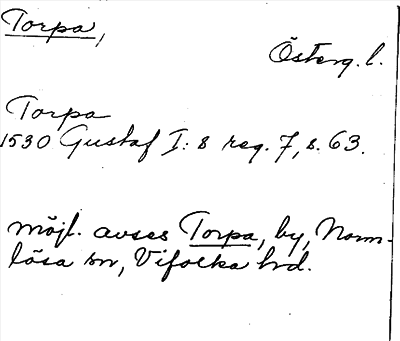 Torpa,
Österg. l.
Torpa
1530 Gustaf I: s reg. 7, s. 63.
möjl. avses Torpa, by, Norm-
lösa sn, Vifolka hrd.